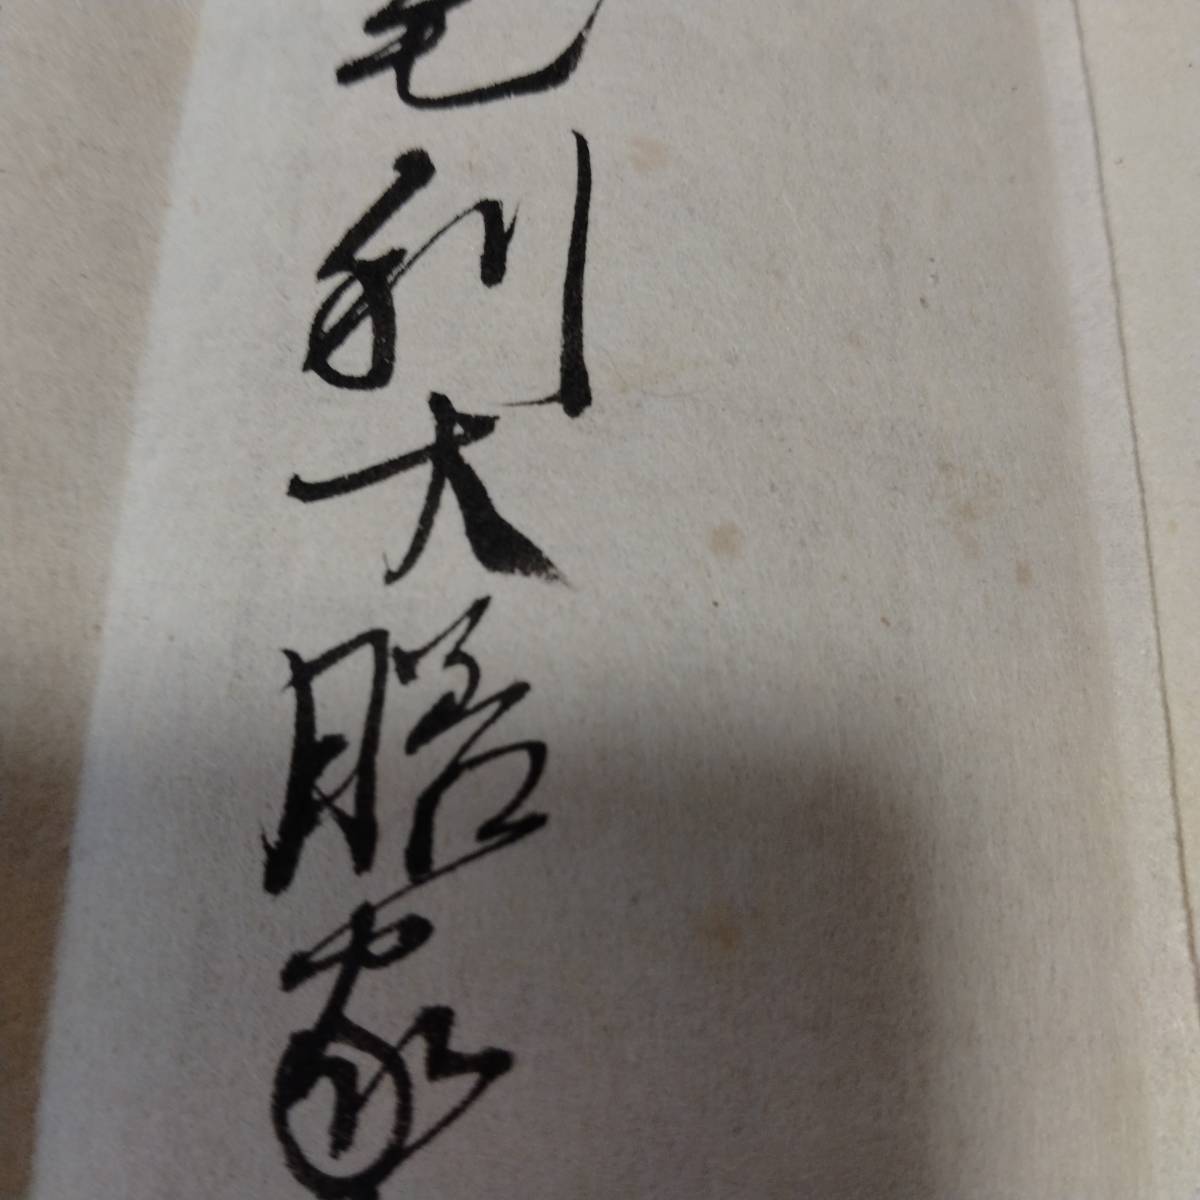 毛利大膳家